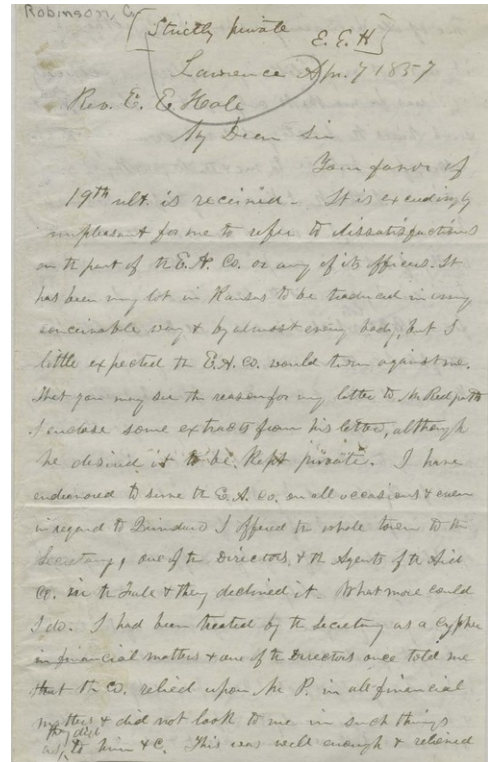 Robinson, C
[Strictly private E. E. H]
Lawrence Apr. 7 1857
Rev. E. E Hale
My Dear Sir
Your favor of
19th ult. is received. It is exceedingly
unpleasant for me to refer to dissatisfactions
on the part of the E. A. Co. or any of its officers. It
has been my lot in Kansas to be traduced in every
conceivable way & by almost every body, but I
little expected the E. A. Co. would turn against me.
That you may see the reason for my letter to Mr Redpath
I enclose some extracts from his letter, although
he desired it to be kept private. I have
endeavored to serve the E. A. Co. on all occasions & even
in regard to Quindaro I offered the whole town to the
Secretary, one of the Directors, & the Agents of the Aid
Co. & they declined it. What more could
I do. I had been treated by the Secretary as a cypher
in financial matters & one of the Directors once told me
that the Co. relied upon Mr P. in all financial
matters & did not look to me in such things
as they did to him &c. This was well enough & relieved